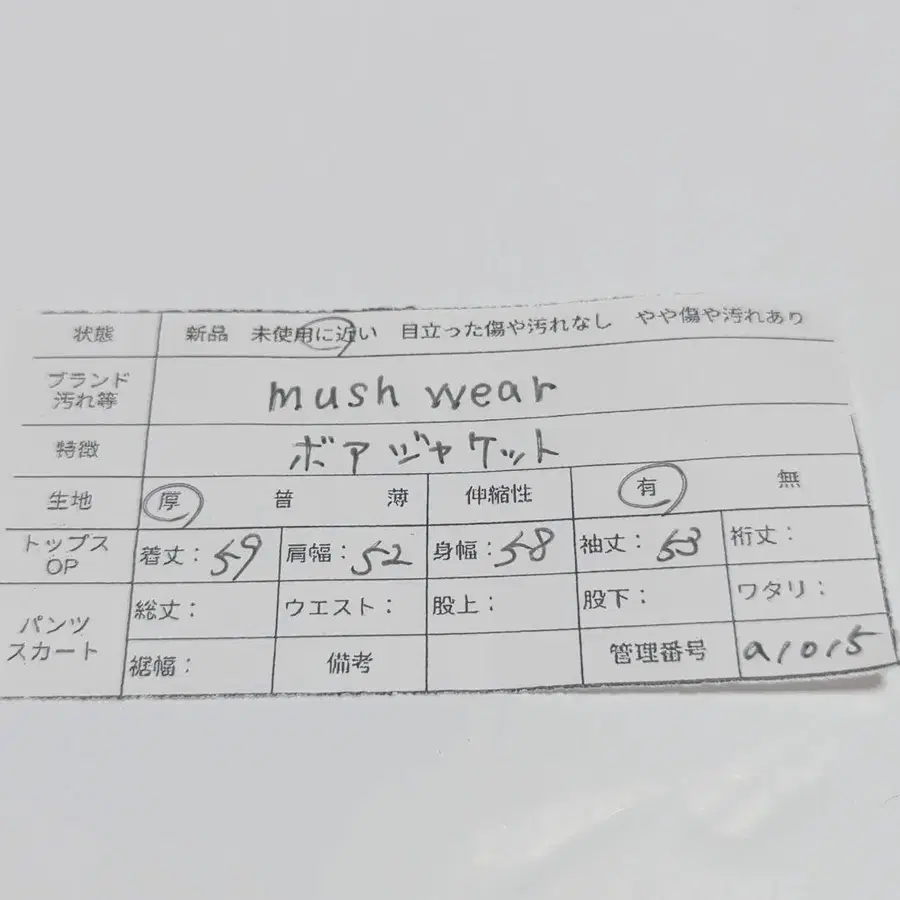 状態 新品 未使用に近い 目立った傷や汚れなし やや傷や汚れあり
ブランド
汚れ等 mush wear
特徴 ボアジャケット
生地 厚 普 薄 伸縮性 有 無
トップス
OP 着丈：59 肩幅：52 身幅：58 袖丈：53 裄丈：
パンツ
スカート 総丈： ウエスト： 股上： 股下： ワタリ：
裾幅： 備考 管理番号 a1015